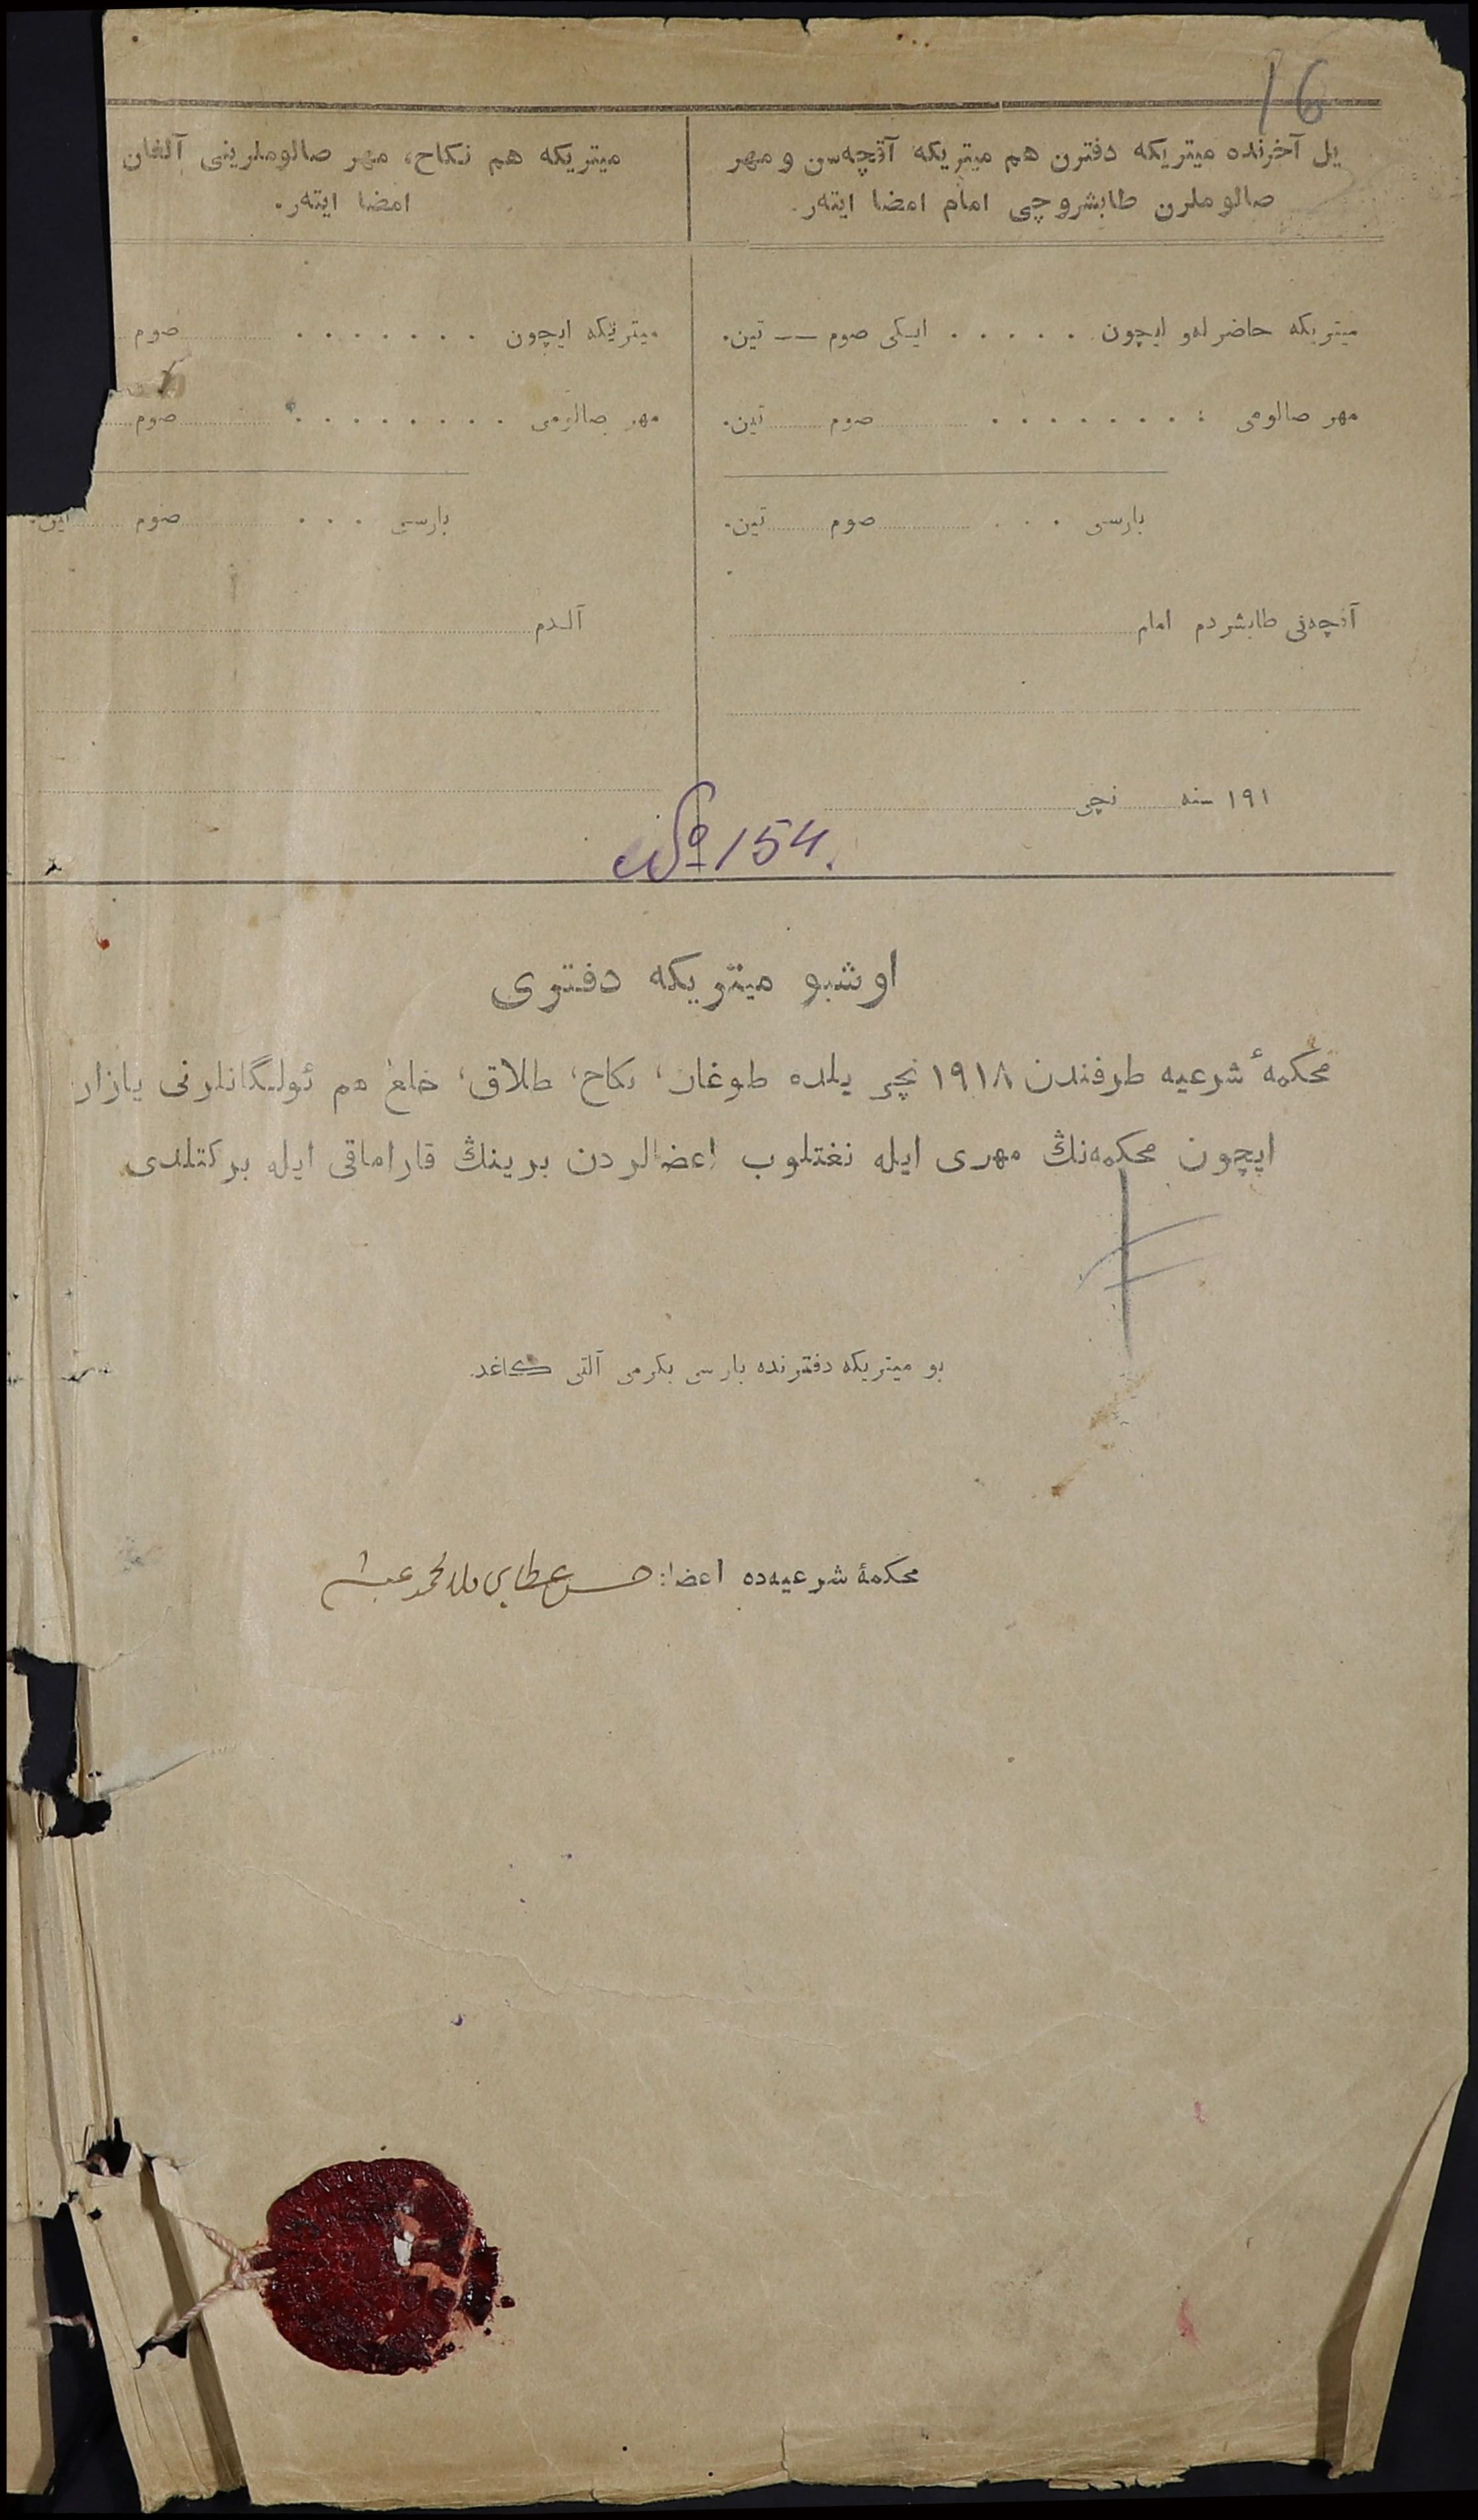 16
یل آخرنده میتریکه دفترن هم میتریکه آقچه‌سن و مهر
صالوملرن طابشروچی امام امضا ایته‌ر.
میتریکه حاضرله‌و ایچون . . . . . ایکی صوم —— تین.
مهر صالومی . . . . . . . . صوم تین.
بارسی . . . صوم تین.
آقچه‌نی طابشردم امام
۱۹۱ سنه نچی
میتریکه هم نکاح، مهر صالوملرینی آلغان
امضا ایته‌ر.
میتریکه ایچون . . . . . . . صوم
مهر صالومی . . . . . . . . صوم
بارسی . . . صوم تین.
آلدم
№ 154.
اوشبو میتریکه دفتری
محکمهٔ شرعیه طرفندن ۱۹۱۸ نچی یلده طوغان، نکاح، طلاق، خلع هم ئولگانلرنی یازار
ایچون محکمه‌نڭ مهری ایله نغتلوب اعضالردن برینڭ قاراماقی ایله برکتلدی
بو میتریکه دفترنده بارسی یکرمی آلتی کاغد.
محکمهٔ شرعیه‌ده اعضا: